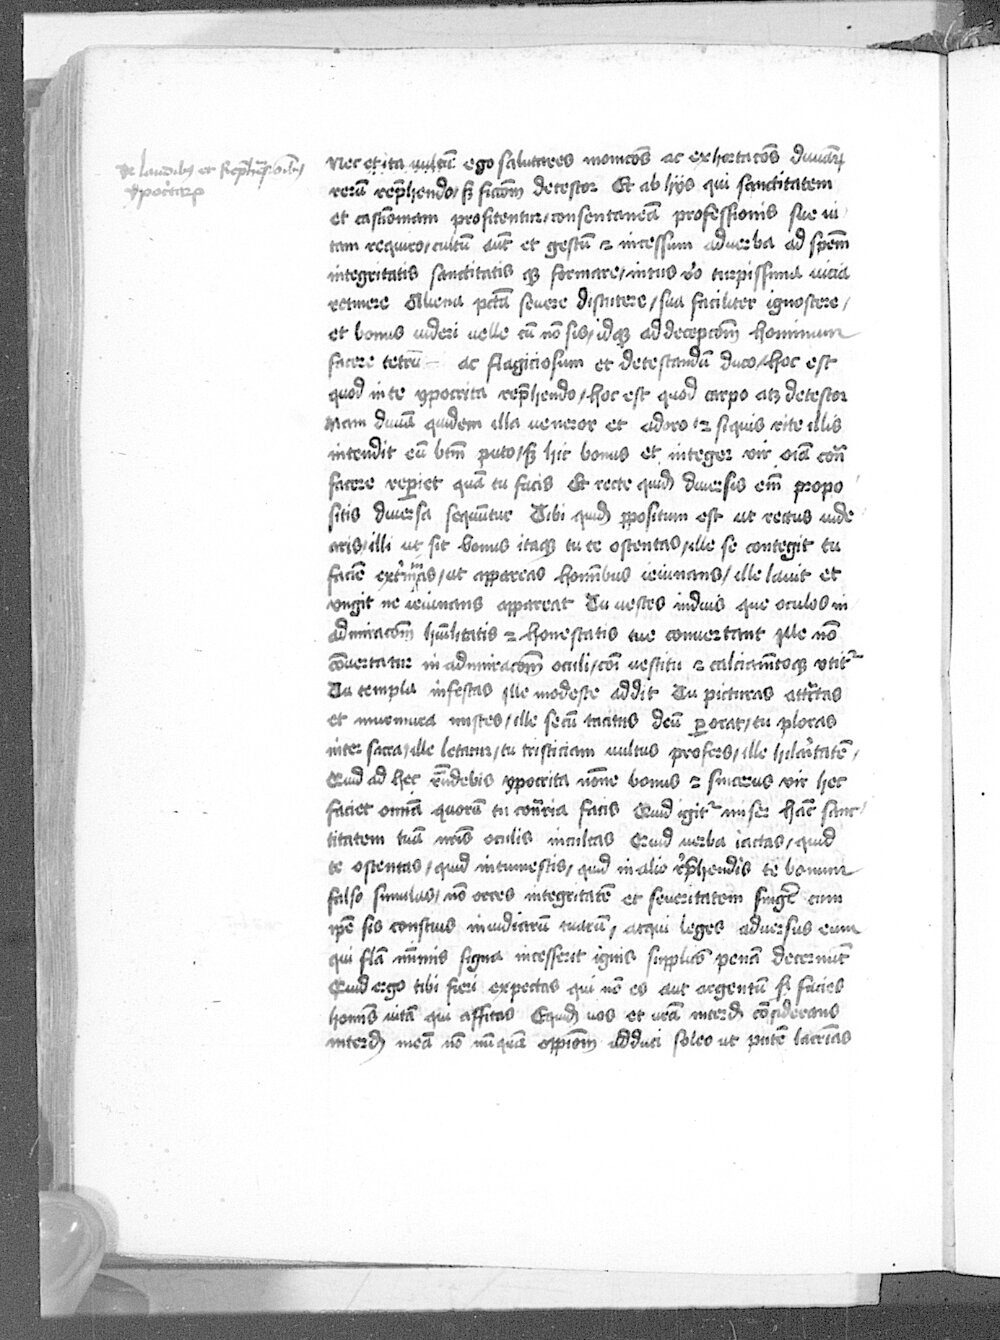 De laudibus et Reprehensionibus
ypocritarum
Nec et ita vultum ego salutares monicōs ac exhortacōs divinarū
rerū rep̄hendo/ sʒ ficcōm detestor Et ab hijs qui sanctitatem
et castimoniam profitentur/ consentaneā professionis sue vi
tam requiro/ cultū aut et gestum et incessum ad verba ad spēm
integritatis sanctitatis qʒ formare/ intus vo turpissima vicia
retinere Aliena pctā severe discutere/ sua faciliter ignoscere/
et bonus videri velle cū nō sis/ idqʒ ad decepcōm hominum
facere tetrū ac flagiciosum et detestandū duco/ hoc est
quod in te ypocrita rep̄hendo/ hoc est quod carpo atqʒ detestor
Nam divina quidem illa veneror et adoro et siquis rite illis
intendit eū btm̄ puto/ sʒ hic bonus et integer vir oīa con̄
facere reperiet quā tu facis Et recte quidē diversis em̄ propo
sitis diversa sequūtur Tibi quidē ppositum est ut rectus vide
aris/ illi ut sit bonus itaqʒ tu te ostentas/ ille se contegit tu
faciē extermīas/ ut appareas hominibus ieiunans/ ille lavit et
ungit ne ieiunans appareat Tu vestes induis que oculos in
admiracōm humilitatis et honestatis tue convertant Ille nō
convertatur in admiracōm oculi/ cōi vestitu et calciamētoqʒ utitr
Tu templa infestas ille modeste addit Tu picturas attrectas
et murmura misces/ ille secū tacitus deū perorat/ tu ploras
inter sacra/ ille letatur/ tu tristiciam vultus profers/ ille hilaritatē/
Quid ad hec rn̄debis ypocrita nōne bonus et sincerus vir hec
faciet omnia quorū tu contraria facis Quid igitr miser hāc sanc
titatem tuā nris oculis inculcas Quid verba iactas/ quid
te ostentas/ quid intumescis/ quid in alio rep̄hendis te bonum
falso simulas/ nō orres integritatē et severitatem fingere cum
ipe sis conscius inmūdiciarū tuarū/ atqui leges adversus eum
qui flā nūmis signa incesserit ignis supplicii penā decernūt
Quid ergo tibi fieri expectas qui nō es aut argentū sʒ facies
hominis vitā qui afficias Equidē vos et vrām interdū considerans
interdū meā nō nūquā oppiniōm adduci soleo ut putē lacrimas